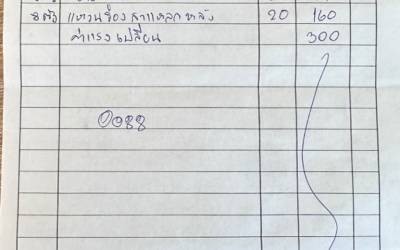 8 ตัว แหวนรองสาแหลกหลัง 20 160
ค่าแรงเปลี่ยน 300
0088